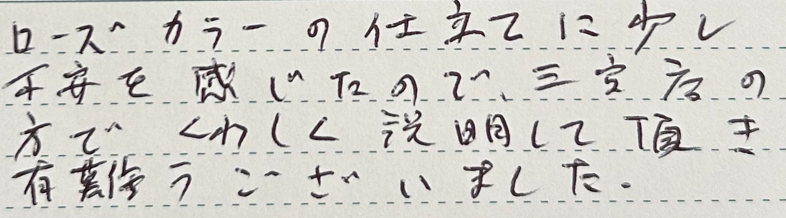 ローズカラーの仕立てに少し
不安を感じたので、三宮店の
方でくわしく説明して頂き
有難う ございました.